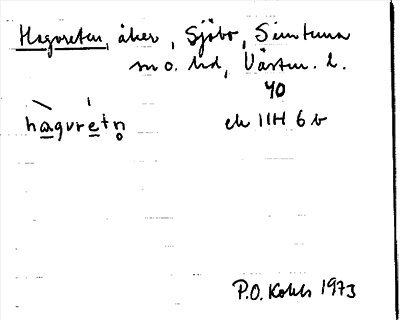 Hagvreten, åker, Sjöbo, Simtuna
sn o. hd, Västm. l.
40
hagvretn ek 11H 6 b
P.O. Kohls 1973